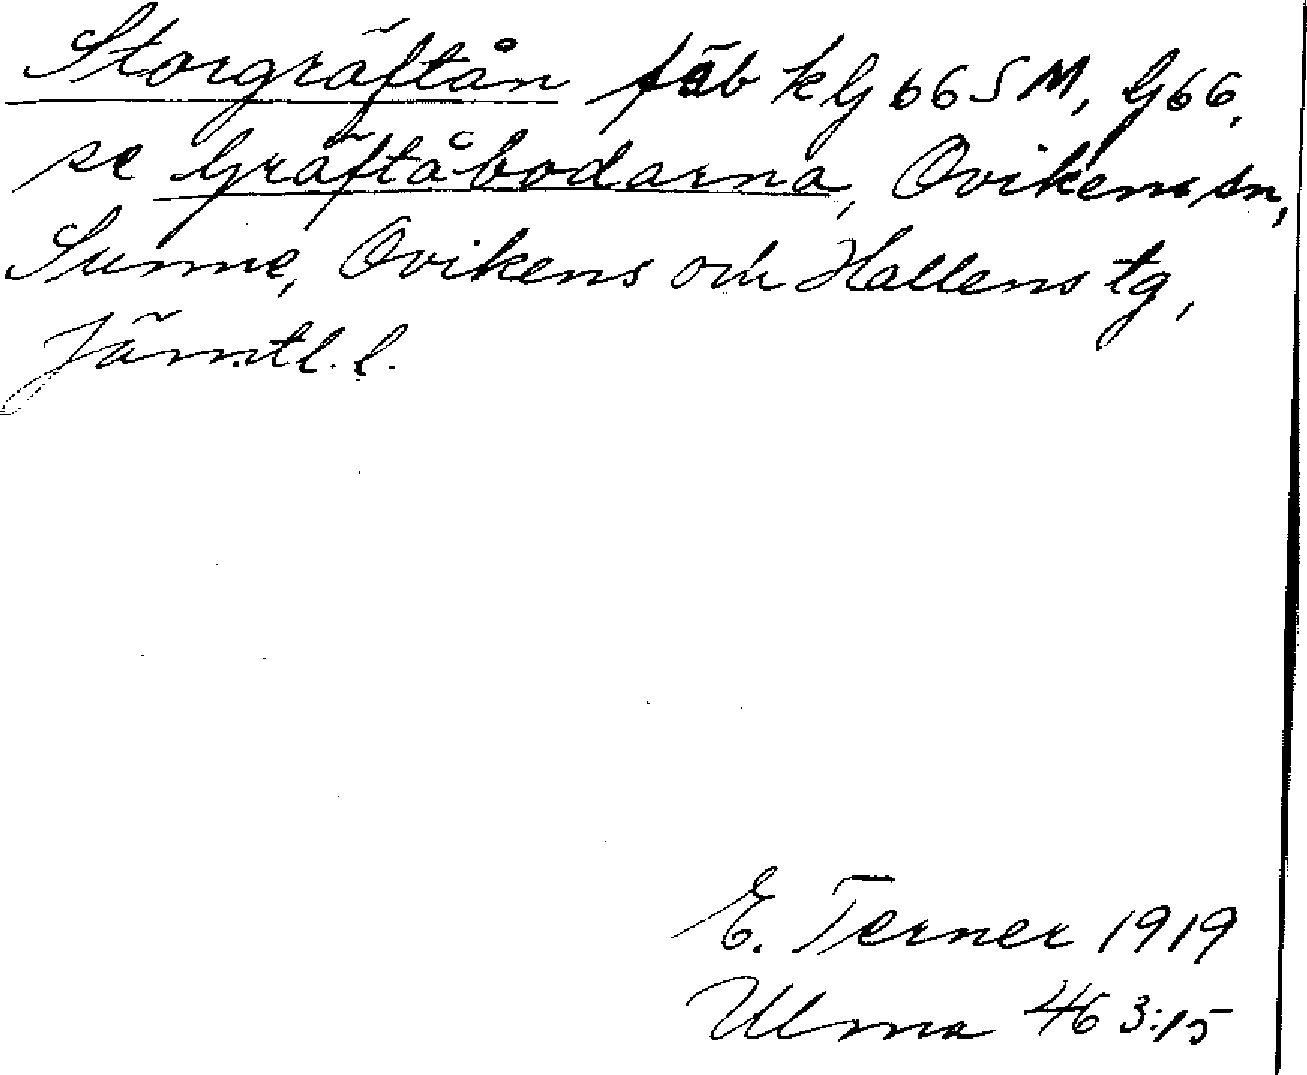 Storgräftån fäb k G 66 SM, G 66,
se Gräftåbodarna, Ovikens sn,
Sunne, Ovikens och Hallens tg,
Jämtl. l.
E. Terner 1919
Ulma 463:15